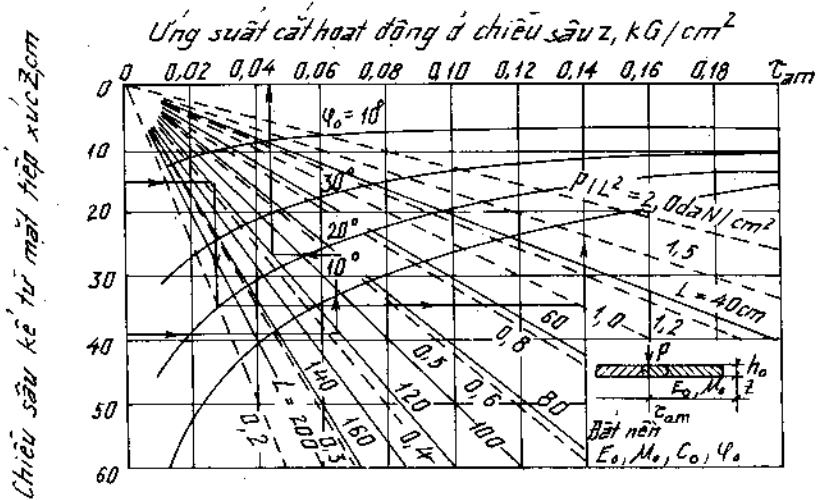 Ứng suất cắt hoạt động ở chiều sâu z, kG/cm²
Chiều sâu kể từ mặt tiếp xúc Z, cm
0 0,02 0,04 0,06 0,08 0,10 0,12 0,14 0,16 0,18 τam
0
10
20
30
40
50
60
φ₀ = 10°
30°
20°
10°
P/L² = 2,0daN/cm²
1,5
L = 40cm
1,2
1,0
60
0,8
80
0,6
0,5
100
120
0,4
140
160
0,3
L = 200
0,2
P
h₀
E₀, M₀
z
τam
Đất nền
E₀, M₀, C₀, φ₀